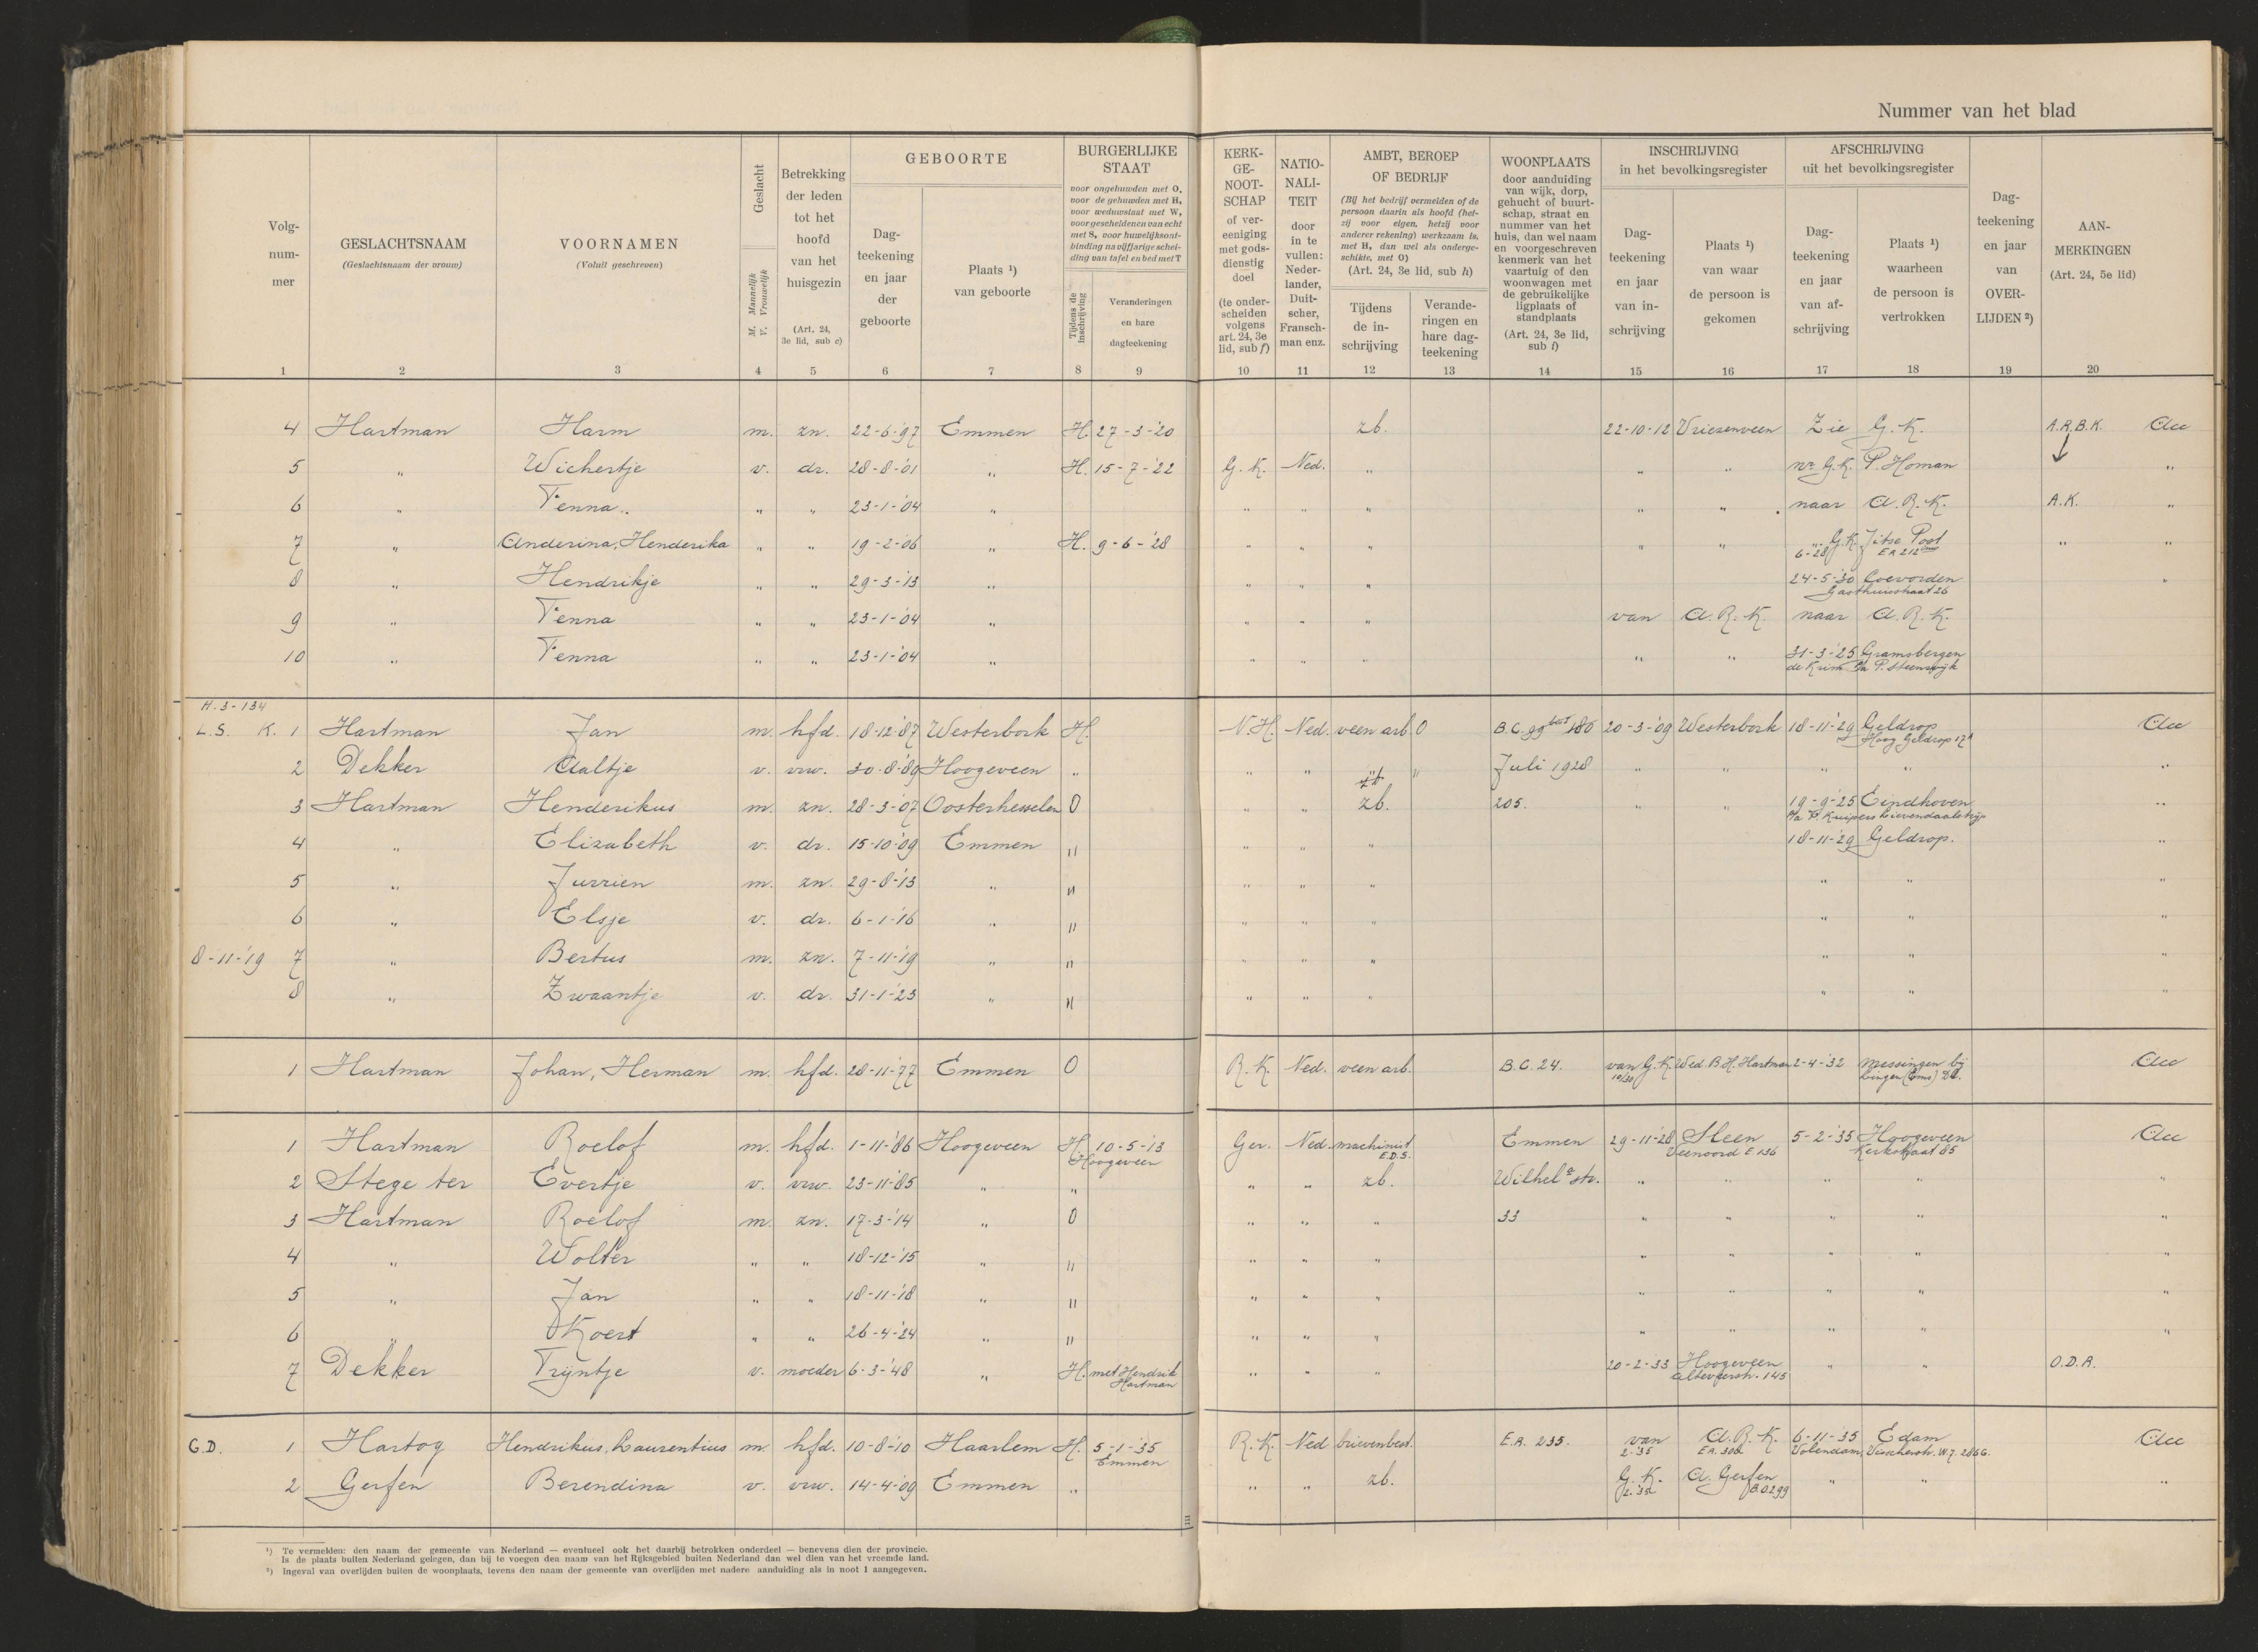 Nummer van het blad
Volg-
num-
mer
GESLACHTSNAAM
(Geslachtsnaam der vrouw)
VOORNAMEN
(Voluit geschreven)
Geslacht
M. Mannelijk
V. Vrouwelijk
Betrekking
der leden
tot het
hoofd
van het
huisgezin
(Art. 24,
3e lid, sub c)
GEBOORTE
Dag-
teekening
en jaar
der
geboorte
Plaats ¹)
van geboorte
BURGERLIJKE
STAAT
voor ongehuwden met O,
voor de gehuwden met H,
voor weduwstaat met W,
voor gescheidenen van echt
met S, voor huwelijksont-
binding na vijfjarige schei-
ding van tafel en bed met T
Tijdens de
inschrijving
Veranderingen
en hare
dagteekening
KERK-
GE-
NOOT-
SCHAP
of ver-
eeniging
met gods-
dienstig
doel
(te onder-
scheiden
volgens
art. 24, 3e
lid, sub f)
NATIO-
NALI-
TEIT
door
in te
vullen:
Neder-
lander,
Duit-
scher,
Fransch-
man enz.
AMBT, BEROEP
OF BEDRIJF
(Bij het bedrijf vermelden of de
persoon daarin als hoofd (het-
zij voor eigen, hetzij voor
anderer rekening) werkzaam is,
met H, dan wel als onderge-
schikte, met O)
(Art. 24, 3e lid, sub h)
Tijdens
de in-
schrijving
Verande-
ringen en
hare dag-
teekening
WOONPLAATS
door aanduiding
van wijk, dorp,
gehucht of buurt-
schap, straat en
nummer van het
huis, dan wel naam
en voorgeschreven
kenmerk van het
vaartuig of den
woonwagen met
de gebruikelijke
ligplaats of
standplaats
(Art. 24, 3e lid,
sub i)
INSCHRIJVING
in het bevolkingsregister
Dag-
teekening
en jaar
van in-
schrijving
Plaats ¹)
van waar
de persoon is
gekomen
AFSCHRIJVING
uit het bevolkingsregister
Dag-
teekening
en jaar
van af-
schrijving
Plaats ¹)
waarheen
de persoon is
vertrokken
Dag-
teekening
en jaar
van
OVER-
LIJDEN ²)
AAN-
MERKINGEN
(Art. 24, 5e lid)
1 2 3 4 5 6 7 8 9 10 11 12 13 14 15 16 17 18 19 20
4 Hartman Harm m. zn. 22-6-'97 Emmen H. 27-3-'20 zb. 22-10-12 Vriezenveen Zie G.K. A.R.B.K.
5 " Wichertje v. dr. 28-8-'01 " H. 15-7-'22 G.K. Ned. " " " nr G.K. P. Homan "
6 " Fenna " " 23-1-'04 " " " " " " naar A.R.K. A.K. "
7 " Anderina, Henderika " " 19-2-'06 " H. 9-6-'28 " " " " " " G.K. Jitse Post " "
6-28 EA 212
8 " Hendrikje " " 29-3-'13 " " " " 24-5-'30 Coevorden "
Gasthuisstraat 26
9 " Fenna " " 23-1-'04 " " " " van A.R.K. naar A.R.K.
10 " Fenna " " 23-1-'04 " " " " " " 31-3-'25 Gramsbergen
de Krim P. Steenwijk
H.3-134
L.S. K. 1 Hartman Jan m. hfd. 18-12-'87 Westerbork H. N.H. Ned. veen arb. O B.C. 99 180 20-3-'09 Westerbork 18-11-'29 Geldrop
Hoog Geldrop
2 Dekker Aaltje v. vrw. 30-8-'89 Hoogeveen " " " " Juli 1928 " " " " "
3 Hartman Henderikus m. zn. 28-3-'07 Oosterhesselen O " " zb. 205. " " 19-9-'25 Eindhoven "
Kuipers
4 " Elizabeth v. dr. 15-10-'09 Emmen " " " " 18-11-'29 Geldrop. "
5 " Jurrien m. zn. 29-8-'13 " " " " " " " "
6 " Elsje v. dr. 6-1-'16 " " " " " " " "
8-11-'19 7 " Bertus m. zn. 7-11-'19 " " " " " " "
8 " Zwaantje v. dr. 31-1-'23 " " " " " " " "
1 Hartman Johan, Herman m. hfd. 28-11-'77 Emmen O R.K. Ned. veen arb. B.C. 24. van G.K. Wed. B.H. Hartman 2-4-'32 Messingen bij
Lingen (Ems)
1 Hartman Roelof m. hfd. 1-11-'86 Hoogeveen H. 10-5-'13 Ger. Ned. machinist Emmen 29-11-'28 Sleen 5-2-'35 Hoogeveen
Hoogeveen E.D.S. Veenoord E 136 Kerkstraat 85
2 Stege ter Evertje v. vrw. 23-11-'85 " " " " zb. Wilhel a str. " " " " "
3 Hartman Roelof m. zn. 17-3-'14 " O " " " 33 " " " " "
4 " Wolter " " 18-12-'15 " " " " " " " " " "
5 " Jan " " 18-11-'18 " " " " " " " " " "
6 " Koert " " 26-4-'24 " " " " " " " " " "
7 Dekker Trijntje v. moeder 6-3-'48 " H. met Hendrik " " " 20-2-33 Hoogeveen " " O.D.A.
Hartman 145
G.D. 1 Hartog Hendrikus, Laurentius m. hfd. 10-8-'10 Haarlem H. 5-1-'35 R.K. Ned brievenbest. E.A. 235. van A.R.K. 6-11-'35 Edam
Emmen 2-35 EA. 308 Volendam,
2 Gerfen Berendina v. vrw. 14-4-'09 Emmen " " " zb. G.K. A. Gerfen " " "
¹) Te vermelden: den naam der gemeente van Nederland — eventueel ook het daarbij betrokken onderdeel — benevens dien der provincie.
Is de plaats buiten Nederland gelegen, dan bij te voegen den naam van het Rijksgebied buiten Nederland dan wel dien van het vreemde land.
²) Ingeval van overlijden buiten de woonplaats, tevens den naam der gemeente van overlijden met nadere aanduiding als in noot 1 aangegeven.